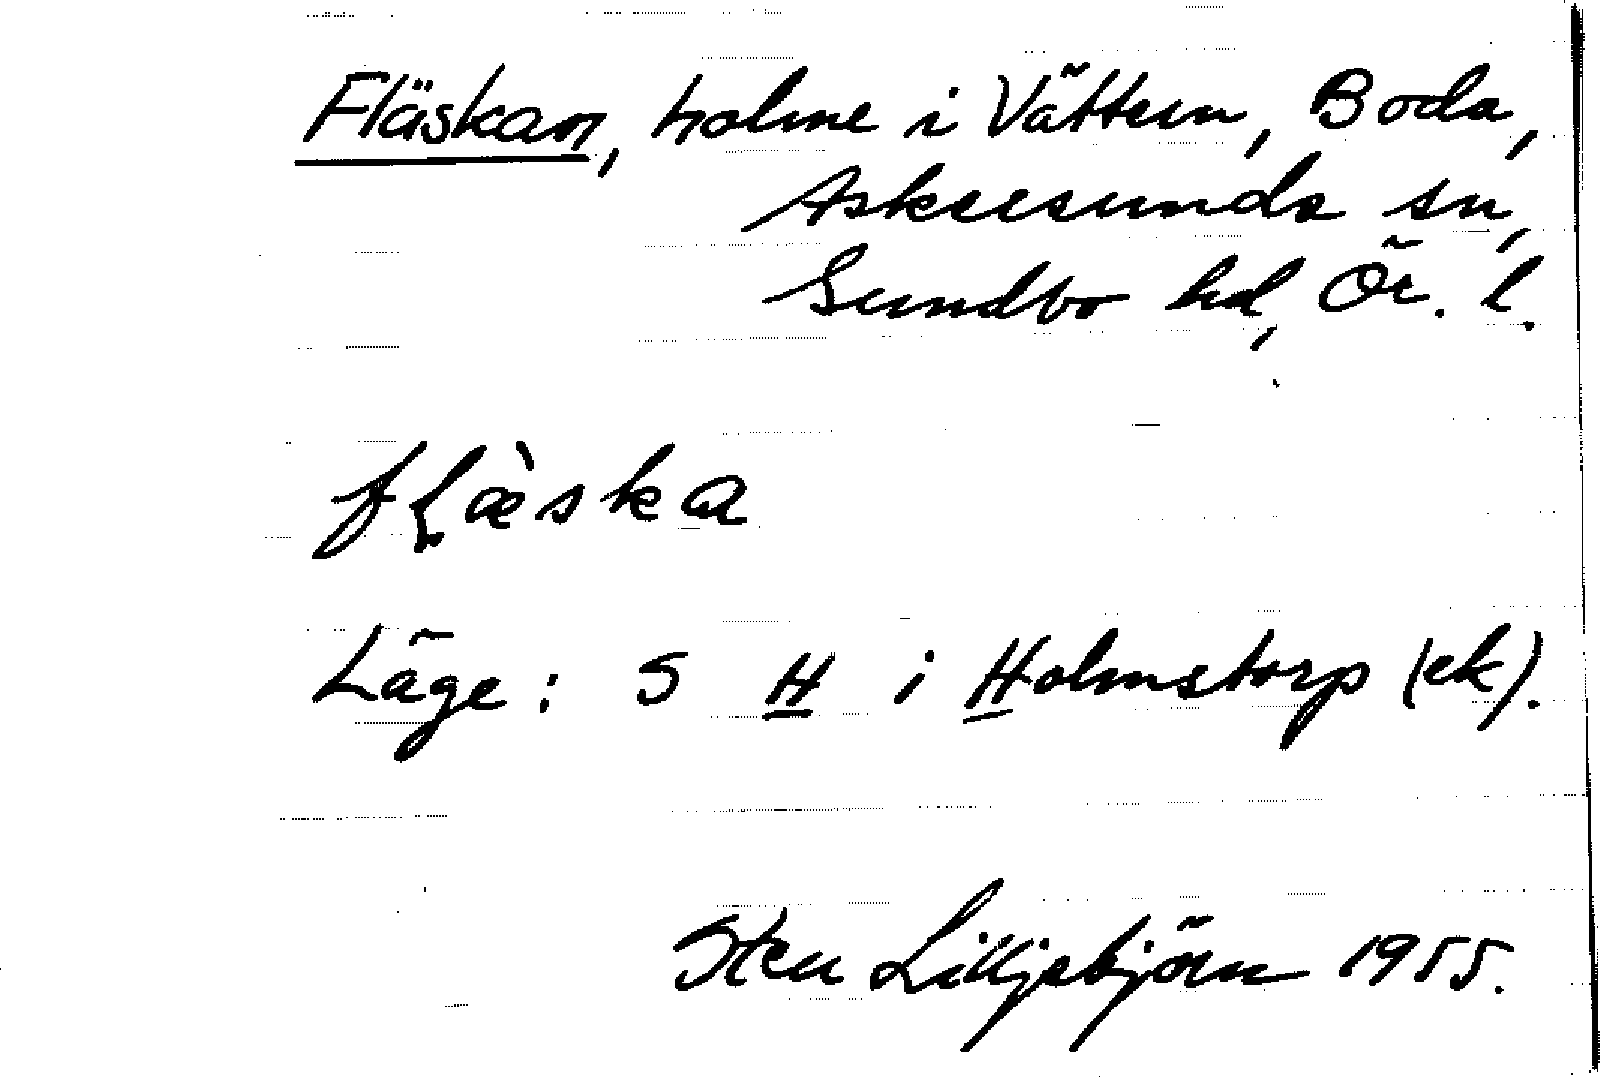 Fläskan, holme i Vättern, Boda,
Askersunds sn,
Sundbo hd, Ör. l.
flæ̀ska
Läge: S H i Holmstorp (ek).
Sten Lilljebjörn 1955.